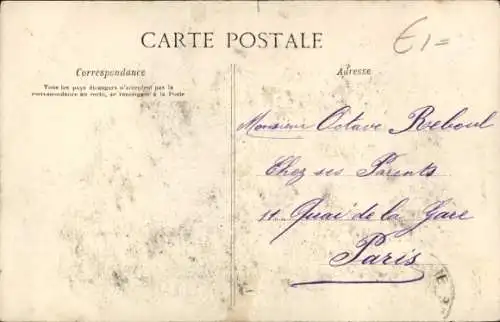 CARTE POSTALE
£1=
Correspondance
Tous les pays étrangers n'acceptent pas la
correspondance au recto, se renseigner à la Poste
Adresse
Monsieur Octave Reboul
Chez ses Parents
11 Quai de la Gare
Paris